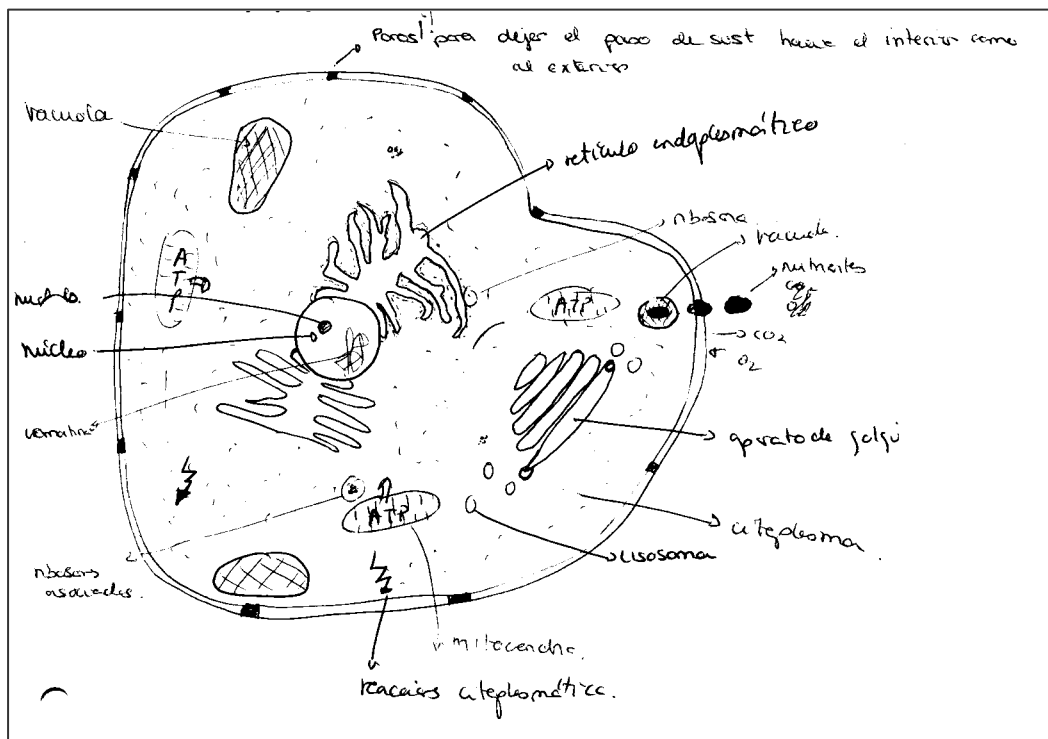 Poros para dejar el paso de sust hacia el interior como
al exterior
vacuola
retículo endoplasmático
ribosoma
vacuola.
nutrientes
ATP
ATP
núcleo
CO2
O2
aparato de golgi
citoplasma.
ATP
lisosoma
ribosomas
asociados.
mitocondria.
reacciones citoplasmática.